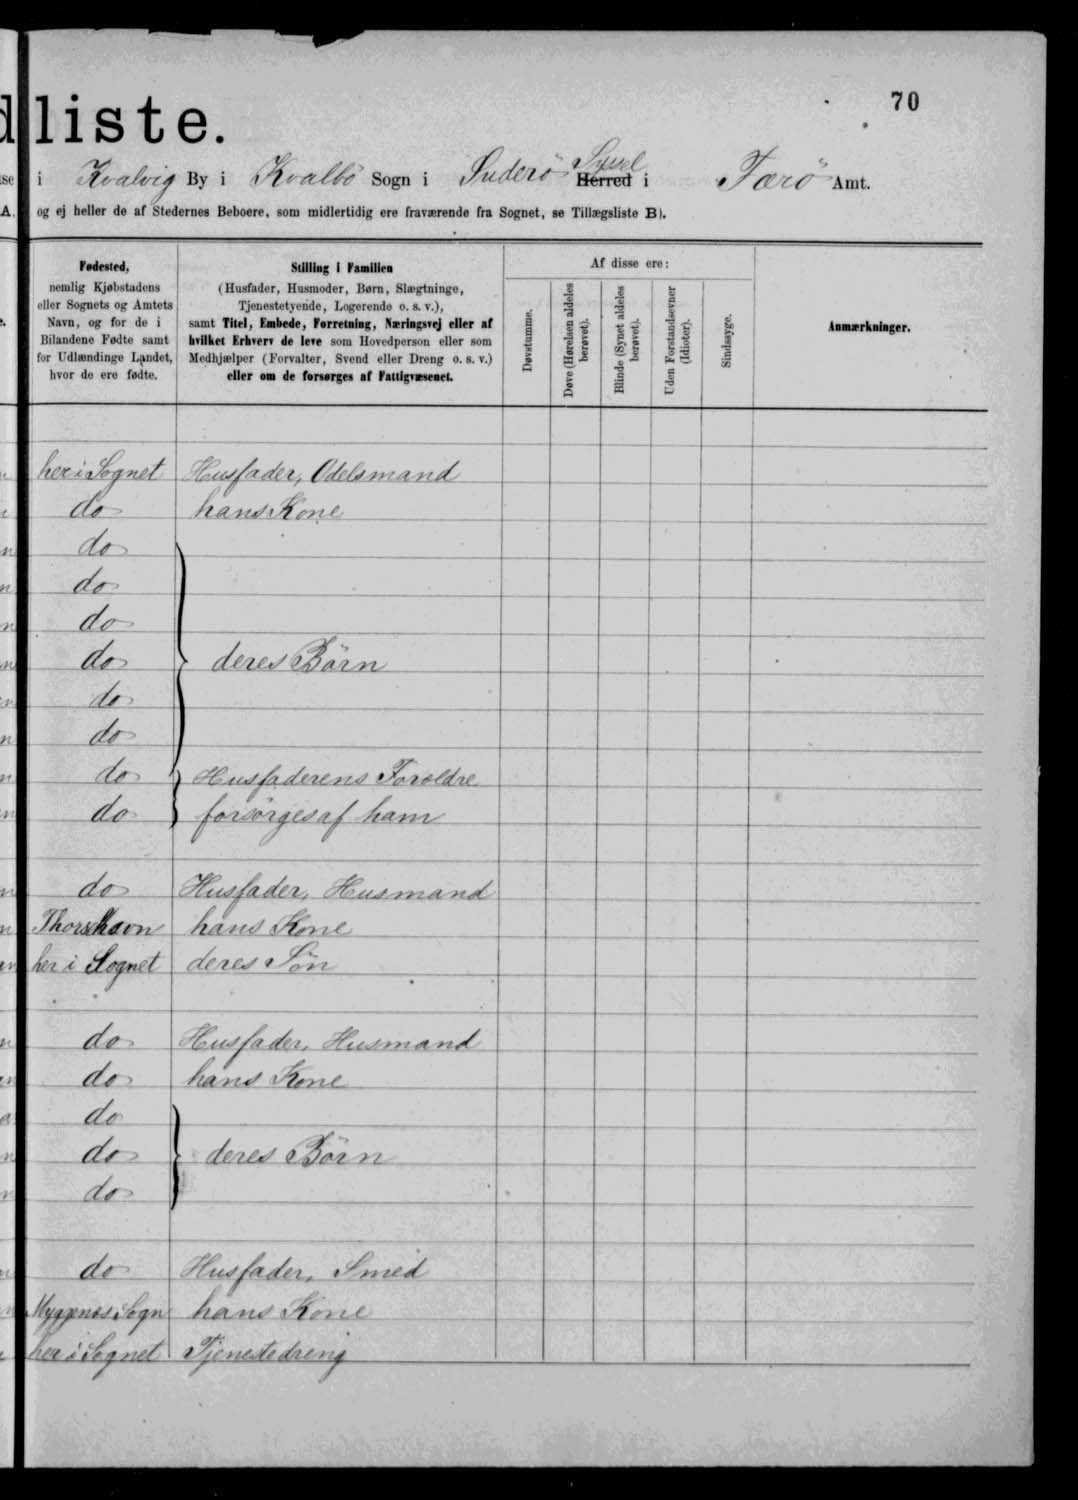 70
dliste.
i Kvalvig By i Kvalbö Sogn i Suderö Syssel Herred i Færö Amt.
og ej heller de af Stedernes Beboere, som midlertidig ere fraværende fra Sognet, se Tillægsliste B).
Fødested,
nemlig Kjøbstadens
eller Sognets og Amtets
Navn, og for de i
Bilandene Fødte samt
for Udlændinge Landet,
hvor de ere fødte.
Stilling i Familien
(Husfader, Husmoder, Børn, Slægtninge,
Tjenestetyende, Logerende o. s. v.),
samt Titel, Embede, Forretning, Næringsvej eller af
hvilket Erhverv de leve som Hovedperson eller som
Medhjælper (Forvalter, Svend eller Dreng o. s. v.)
eller om de forsørges af Fattigvæsenet.
Af disse ere:
Døvstumme.
Døve (Hørelsen aldeles
berøvet).
Blinde (Synet aldeles
berøvet).
Uden Forstandsevner
(Idioter).
Sindssyge.
Anmærkninger.
her i Sognet Husfader, Odelsmand
do hans Kone
do
do
do
do deres Börn
do
do
do Husfaderens Forældre
do forsörges af ham
do Husfader, Husmand
Thorshavn hans Kone
her i Sognet deres Sön
do Husfader, Husmand
do hans Kone
do
do deres Börn
do
do Husfader, Smed
Myggenæs Sogn hans Kone
her i Sognet Tjenestedreng